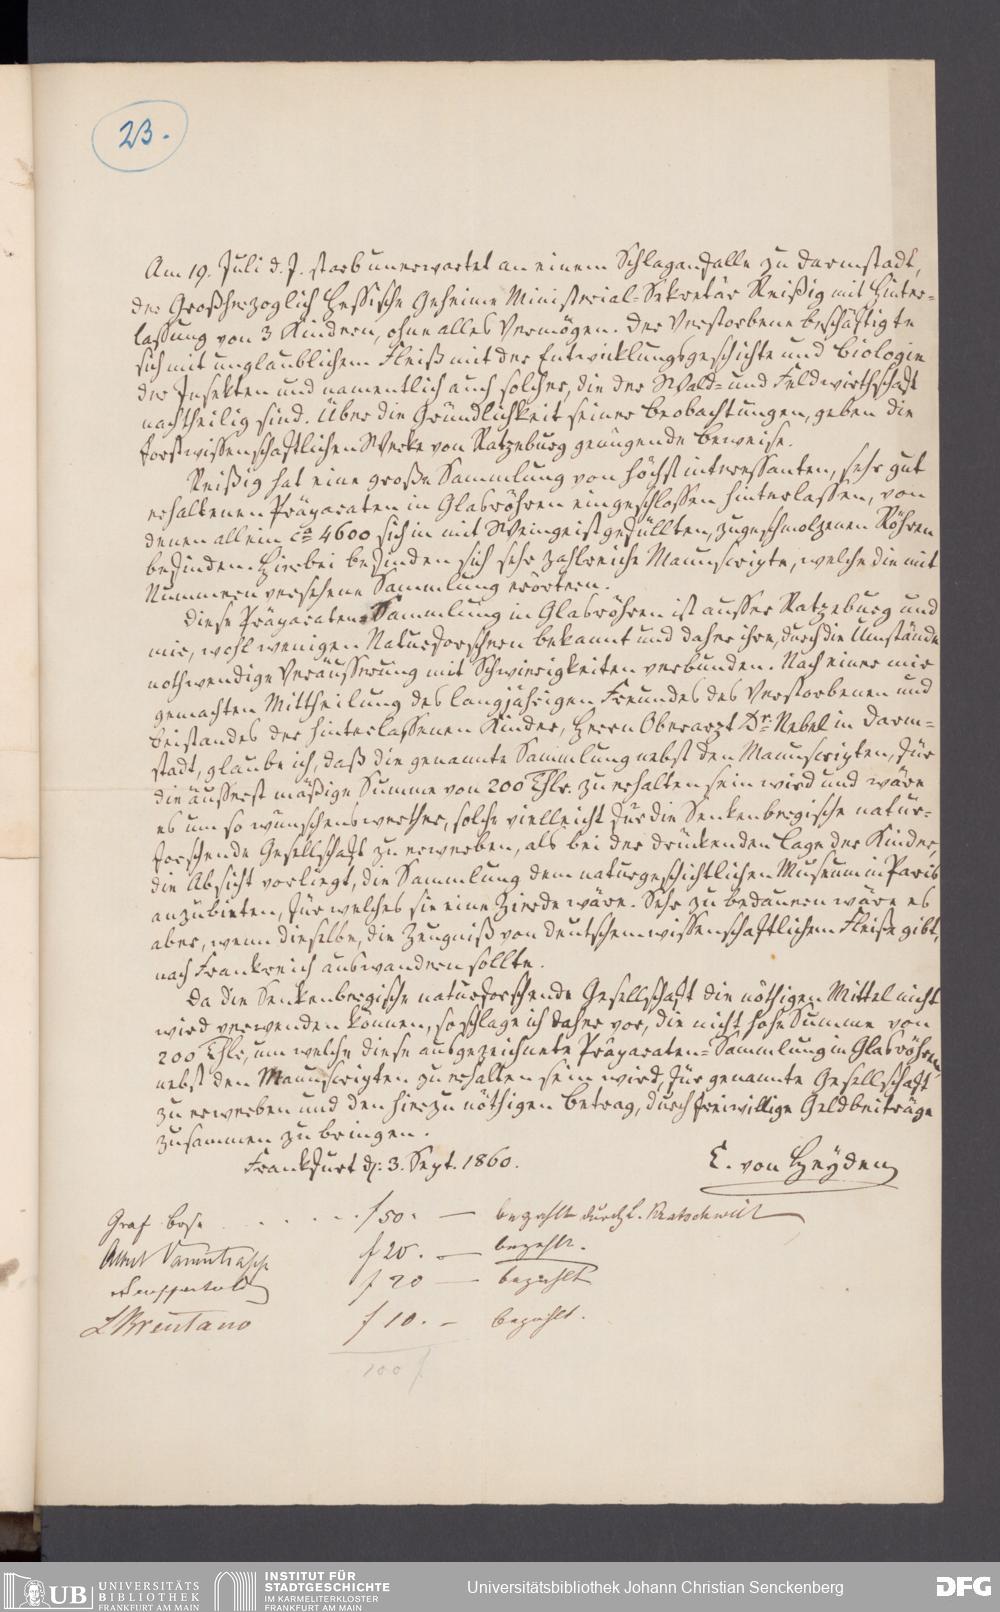 23.
Am 19. Juli d. J. starb unerwartet an einem Schlaganfalle zu Darmstadt,
der Großherzoglich Hessische Geheime Ministerial-Sekretär Reißig mit Hinter-
lassung von 3 Kindern, ohne alles Vermögen. Der Verstorbene beschäftigte
sich mit unglaublichem Fleiß mit der Entwicklungsgeschichte und Biologie
der Insekten und namentlich auch solcher, die der Wald- und Feldwirthschaft
nachtheilig sind. Über die Gründlichkeit seiner Beobachtungen, geben die
forstwissenschaftlichen Werke von Ratzeburg genügende Beweise.
Reißig hat eine große Sammlung von höchst interessanten, sehr gut
erhaltenen Präparaten in Glasröhren eingeschlossen hinterlassen, von
denen allein ca 4600 sich in mit Weingeist gefüllten, zugeschmolzenen Röhren
befinden. Hierbei befinden sich sehr zahlreiche Manuscripte, welche die mit
Nummern versehene Sammlung erörtern.
Diese Präparaten-Sammlung in Glasröhren ist ausser Ratzeburg und
mir, wohl wenigen Naturforschern bekannt und daher ihre, durch die Umstände
nothwendige Veräusserung mit Schwierigkeiten verbunden. Nach einer mir
gemachten Mittheilung des langjährigen Freundes des Verstorbenen und
Beistandes der hinterlassenen Kinder, Herrn Oberarzt Dr. Nebel in Darm-
stadt, glaube ich, daß die genannte Sammlung nebst den Manuscripten, für
die äusserst mäßige Summe von 200 Thlr. zu erhalten sein wird und wäre
es um so wünschenswerther, solche vielleicht für die Senkenbergische natur-
forschende Gesellschaft zu erwerben, als bei der drückenden Lage der Kinder,
die Absicht vorliegt, die Sammlung dem naturgeschichtlichen Museum in Paris
anzubieten, für welches sie eine Zierde wäre. Sehr zu bedauern wäre es
aber, wenn dieselbe, die Zeugniß von deutschem wissenschaftlichem Fleiße gibt,
nach Frankreich auswandern sollte.
Da die Senkenbergische naturforschende Gesellschaft die nöthigen Mittel nicht
wird verwenden können, so schlage ich daher vor, die nicht hohe Summe von
200 Thlr, um welche diese ausgezeichnete Präparaten-Sammlung in Glasröhren,
nebst den Manuscripten zu erhalten sein wird, für genannte Gesellschaft
zu erwerben und den hierzu nöthigen Betrag, durch freiwillige Geldbeiträge
zusammen zu bringen.
Frankfurt d. 3. Sept. 1860.
C. von Heyden
Graf Bose . . . . . f 50. — bezahlt durch
Albert Varrentrapp f 20. — bezahlt.
f 20 — bezahlt
L Brentano f 10. — bezahlt.
100 f
UB UNIVERSITÄTS
BIBLIOTHEK
FRANKFURT AM MAIN
INSTITUT FÜR
STADTGESCHICHTE
IM KARMELITERKLOSTER
FRANKFURT AM MAIN
Universitätsbibliothek Johann Christian Senckenberg
DFG